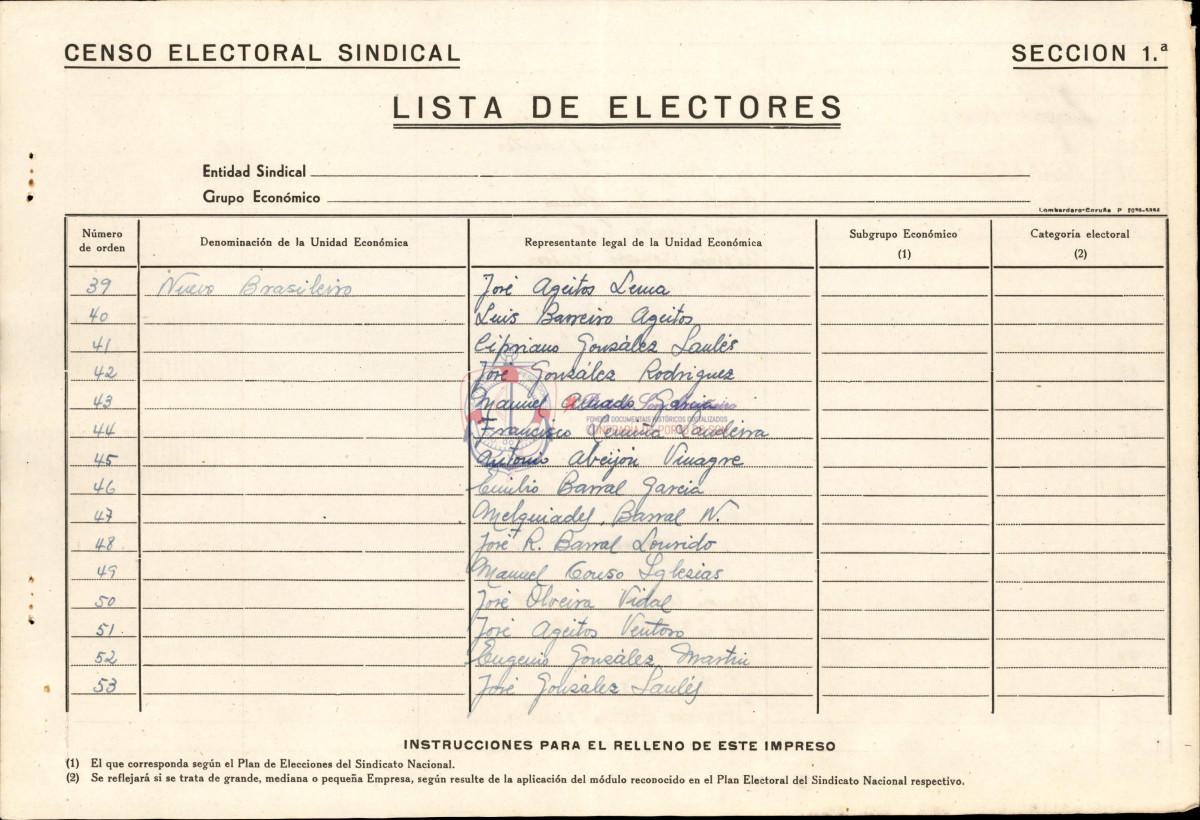 CENSO ELECTORAL SINDICAL
SECCION 1.ª
LISTA DE ELECTORES
Entidad Sindical
Grupo Económico
Lombardero-Coruña P
Número de orden
Denominación de la Unidad Económica
Representante legal de la Unidad Económica
Subgrupo Económico
(1)
Categoria electoral
(2)
39 Nuevo Brasileiro José Ageitos Lema
40 Luis Barreiro Ageitos
41 Cipriano González Saulés
42 José González Rodriguez
43 Manuel García
44 Francisco
45 Antonio Abeijón Vinagre
46 Emilio Barral Garcia
47 Melquiades, Barral N.
48 José R. Barral Lourido
49 Manuel Couso Iglesias
50 José Olveira Vidal
51. José Ageitos Ventoso
52 Eugenio González Martin
53 José González Saulés
INSTRUCCIONES PARA EL RELLENO DE ESTE IMPRESO
(1) El que corresponda según el Plan de Elecciones del Sindicato Nacional.
(2) Se reflejará si se trata de grande, mediana o pequeña Empresa, según resulte de la aplicación del módulo reconocido en el Plan Electoral del Sindicato Nacional respectivo.